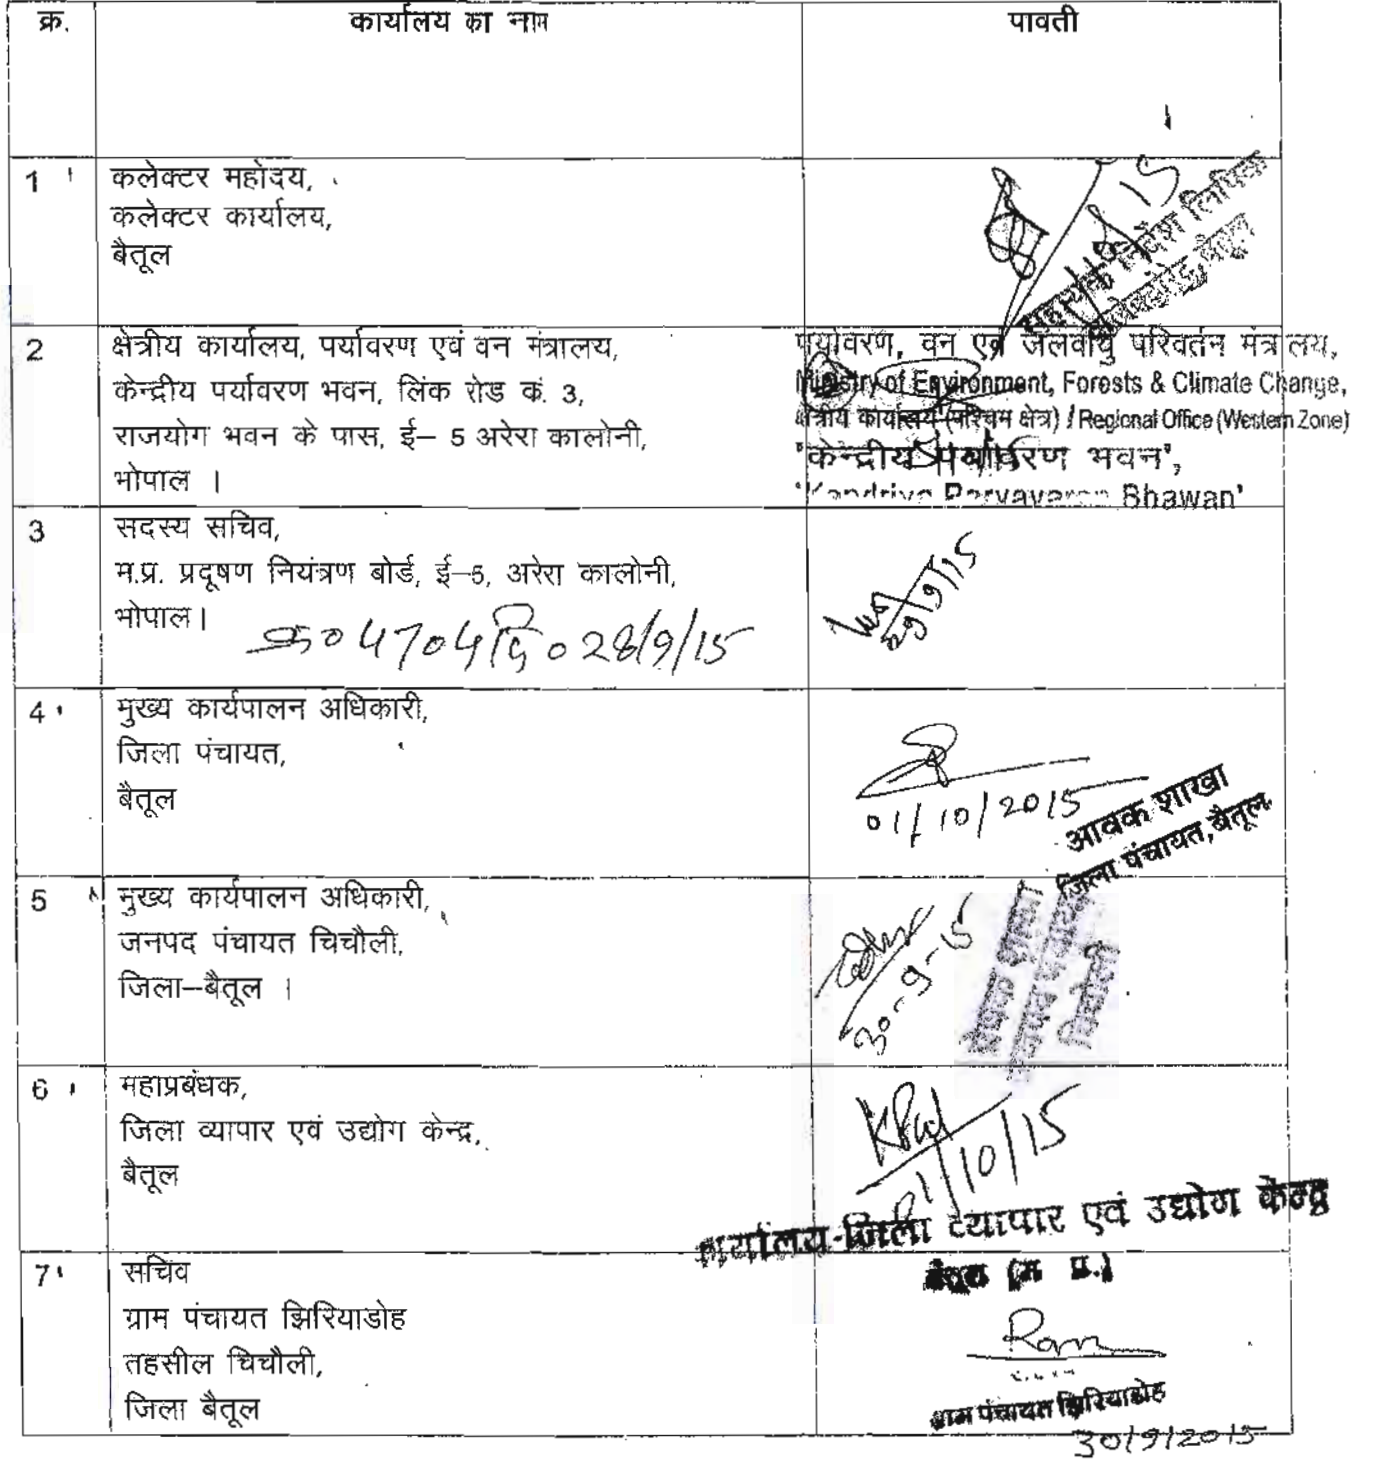 क्र. कार्यालय का नाम पावती
1 कलेक्टर महोदय,
कलेक्टर कार्यालय,
बैतूल
15
निर्देश लिपिक
बैतूल
2 क्षेत्रीय कार्यालय, पर्यावरण एवं वन मंत्रालय,
केन्द्रीय पर्यावरण भवन, लिंक रोड कं. 3,
राजयोग भवन के पास, ई– 5 अरेरा कालोनी,
भोपाल ।
पर्यावरण, वन एवं जलवायु परिवर्तन मंत्रालय,
Ministry of Environment, Forests & Climate Change,
क्षेत्रीय कार्यालय (पश्चिम क्षेत्र) / Regional Office (Western Zone)
'केन्द्रीय पर्यावरण भवन',
Bhawan'
3 सदस्य सचिव,
म.प्र. प्रदूषण नियंत्रण बोर्ड, ई–5, अरेरा कालोनी,
भोपाल।
क्र0 4704 दि0 28/9/15
29/9/15
4 मुख्य कार्यपालन अधिकारी,
जिला पंचायत,
बैतूल
01/10/2015
आवक शाखा
जिला पंचायत, बैतूल.
5 मुख्य कार्यपालन अधिकारी,
जनपद पंचायत चिचौली,
जिला–बैतूल ।
30-9-15
6 महाप्रबंधक,
जिला व्यापार एवं उद्योग केन्द्र,
बैतूल
01/10/15
कार्यालय-जिला व्यापार एवं उद्योग केन्द्र
बैतूल (म प्र.)
7 सचिव
ग्राम पंचायत झिरियाडोह
तहसील चिचौली,
जिला बैतूल
Ram
ग्राम पंचायत झिरियाडोह
30/9/2015